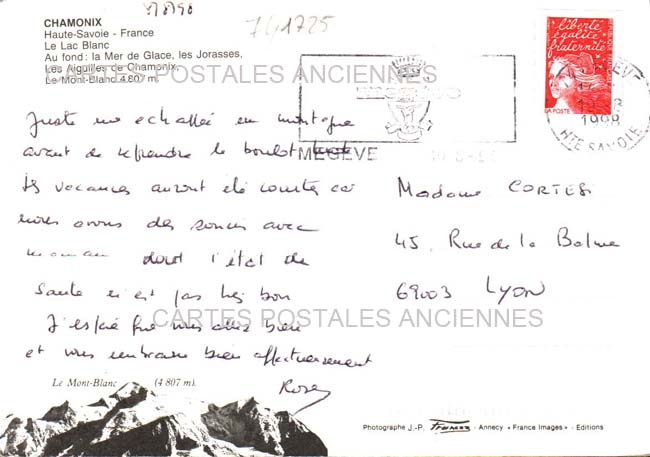 18/8/98
741725
CHAMONIX
Haute-Savoie - France
Le Lac Blanc
Au fond : la Mer de Glace, les Jorasses,
Les Aiguilles de Chamonix,
Le Mont-Blanc 4 807 m.
CARTES POSTALES ANCIENNES
liberté
égalité
fraternité
LA POSTE
MEGEVE
1998
HTE SAVOIE
MEGEVE
Juste une echappée en montagne
avant de reprendre le boulot
les vacances auront été courtes car
nous avons des soucis avec
maman dont l'état de
santé n'est pas très bon
J'espère que vous allez bien
et vous embrasse bien affectueusement
Rose
Madame CORTES
45, Rue de la Balme
69003 LYON
CARTES POSTALES ANCIENNES
Le Mont-Blanc (4 807 m).
Photographe J.-P. - Annecy « France Images » - Editions